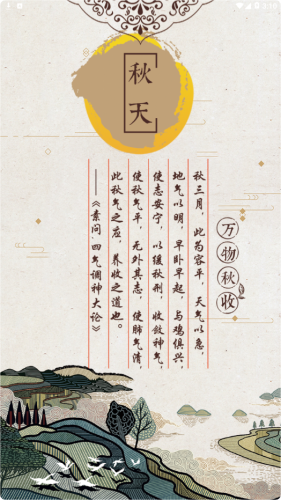 秋天
万物秋收
秋三月，此为容平，天气以急，
地气以明，早卧早起，与鸡俱兴，
使志安宁，以缓秋刑，收敛神气，
使秋气平，无外其志，使肺气清，
此秋气之应，养收之道也。
——《素问·四气调神大论》